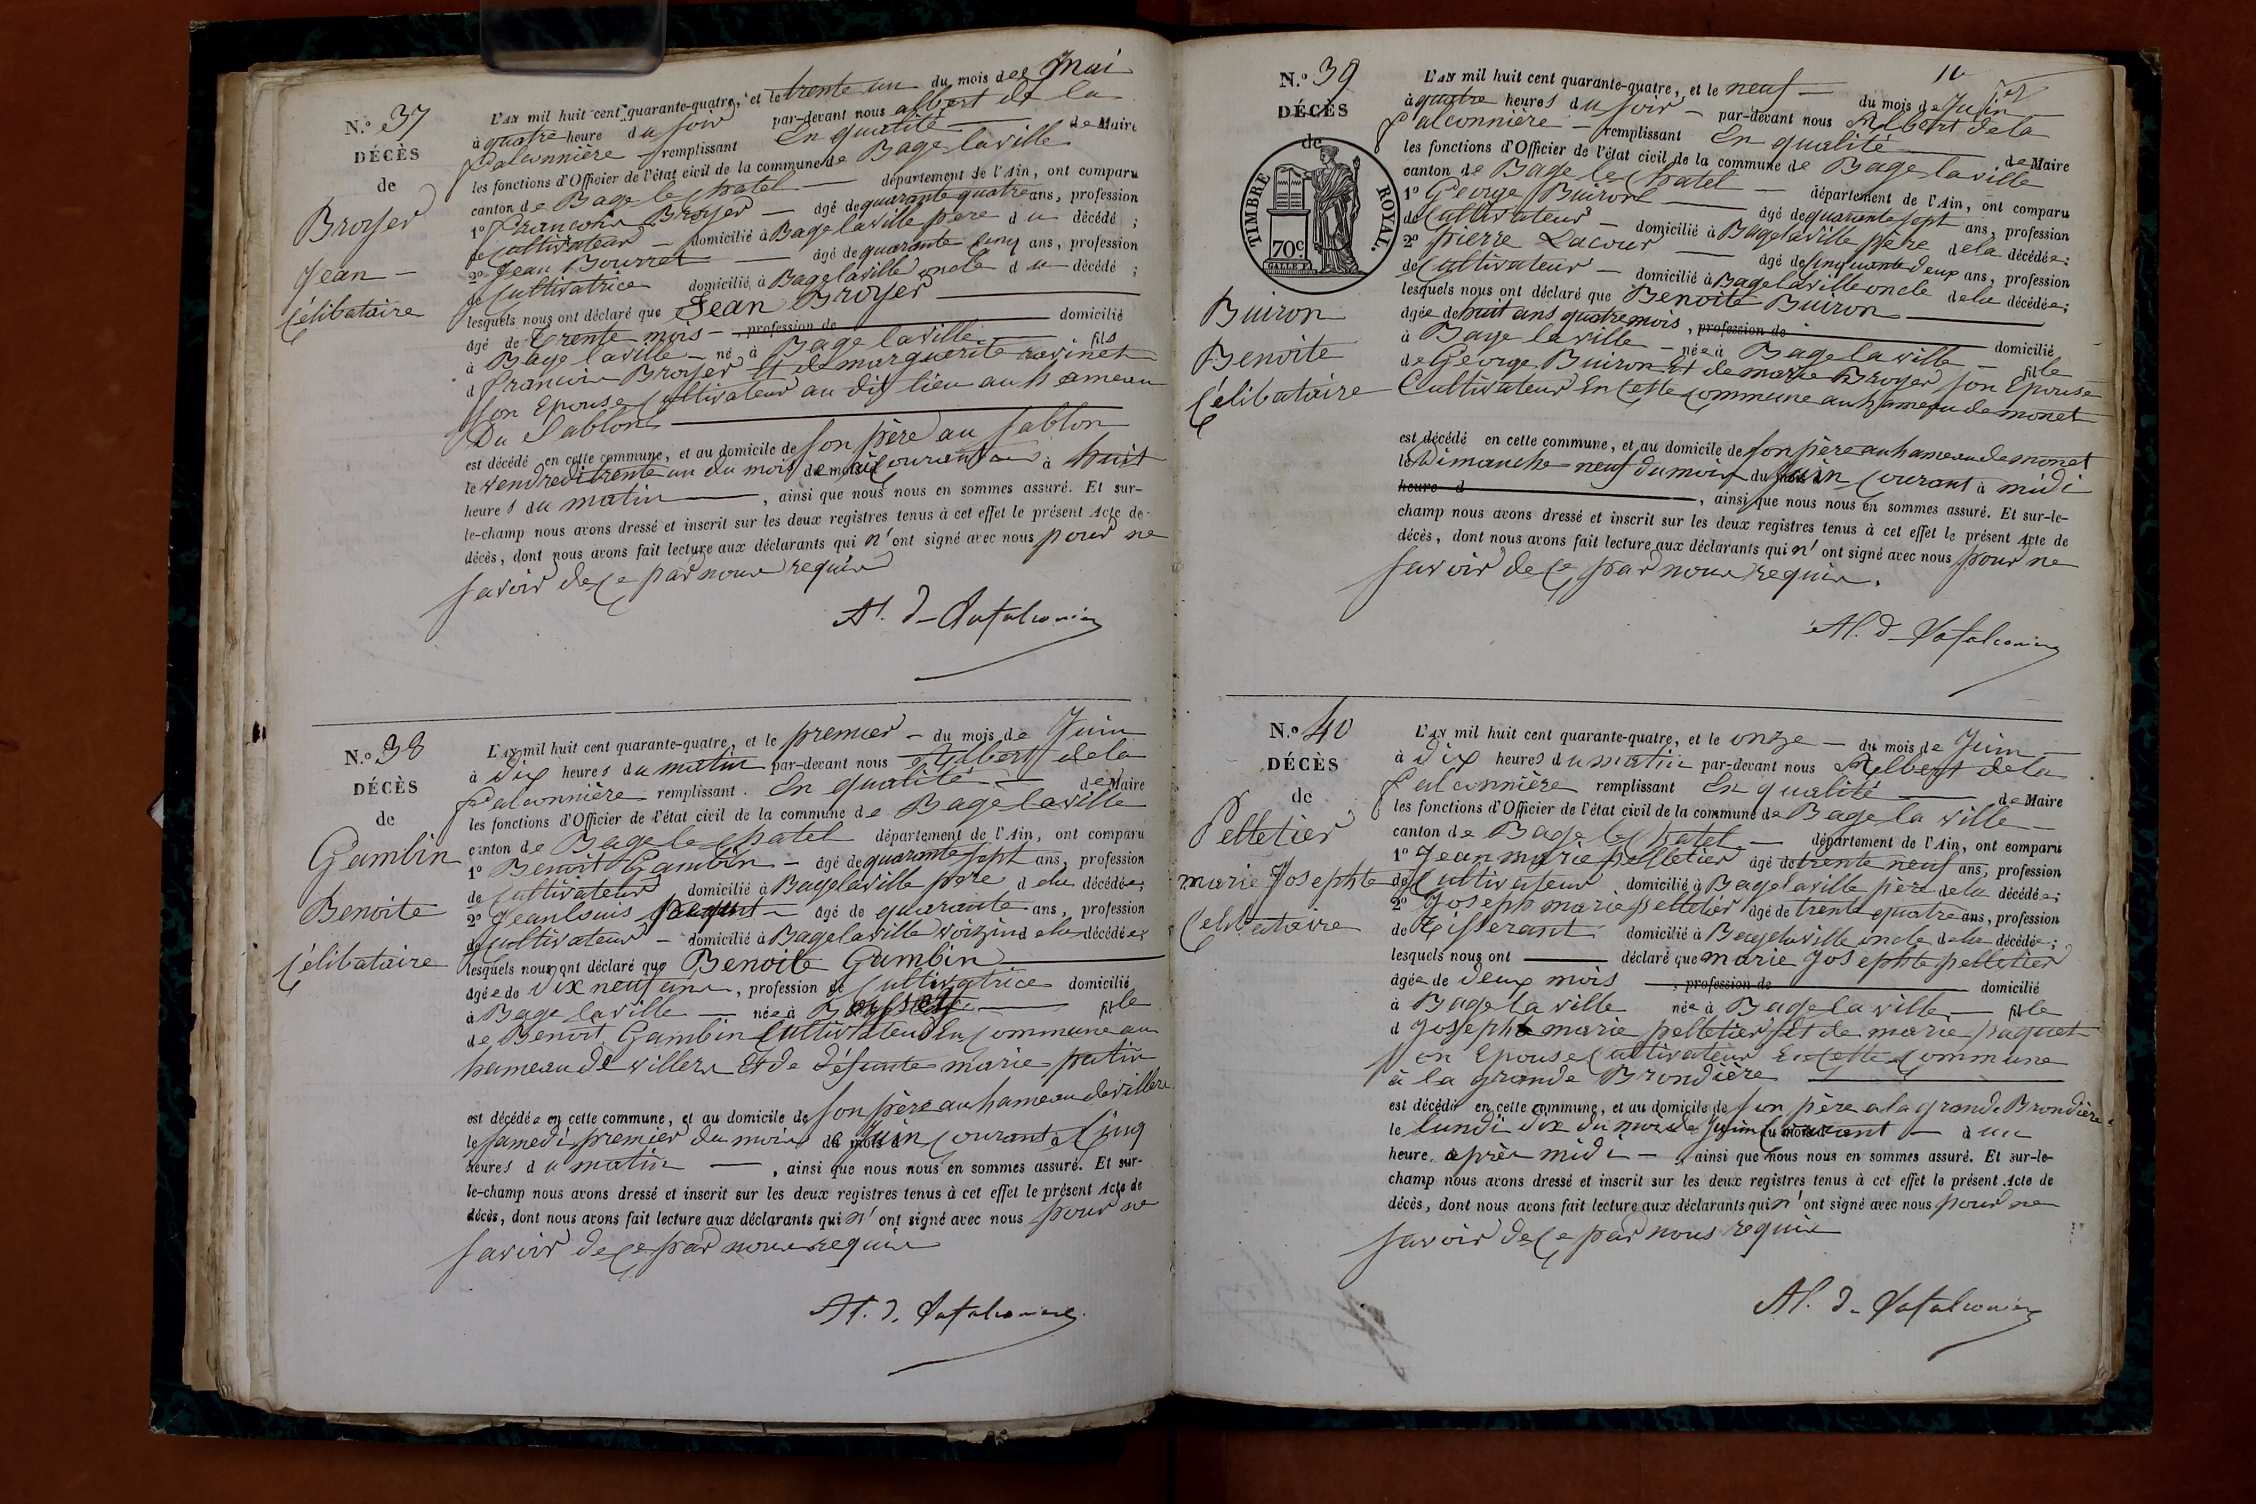 N.º 37
DÉCÈS
de
Broyer
Jean —
Célibataire
L'AN mil huit cent quarante-quatre, et le trente un du mois de Mai
à quatre heure du soir par-devant nous albert de la
falconnière — remplissant En qualité — de Maire
les fonctions d'Officier de l'état civil de la commune de Bage laville
canton de Bage le Chatel — département de l'Ain, ont comparu
1º françois Broyer — âgé de quarante quatre ans, profession
de Cultivateur — domicilié à Bage laville père du décédé ;
2º Jean Bourret — âgé de quarante Cinq ans, profession
de Cultivatrice domicilié à Bage laville oncle du décédé ;
lesquels nous ont déclaré que Jean Broyer —
âgé de trente mois — profession de domicilié
à Bage laville — né à Bage laville — fils
d françois Broyer Et de marguerite ravinet
son Epouse Cultivateur au dit lieu au hameau
Du Sablon —
est décédé en cette commune, et au domicile de son père au sablon
le vendredi trente un du mois de mai courant à huit
heures du matin —, ainsi que nous nous en sommes assuré. Et sur-
le-champ nous avons dressé et inscrit sur les deux registres tenus à cet effet le présent Acte de
décès, dont nous avons fait lecture aux déclarants qui n'ont signé avec nous pour ne
savoir de ce par nous requis
Al. d. Lafalconière
N.º 38
DÉCÈS
de
Gambin
Benoite
Célibataire
L'AN mil huit cent quarante-quatre, et le premier — du mois de Juin
à dix heures du matin par-devant nous Albert dela
falconnière remplissant En qualité — de Maire
les fonctions d'Officier de l'état civil de la commune de Bage laville
canton de Bage le Chatel département de l'Ain, ont comparu
1º Benoit Gambin — âgé de quarante sept ans, profession
de Cultivateur domicilié à Bage laville père dela décédée;
2º Jean louis — âgé de quarante ans, profession
de Cultivateur — domicilié à Bage laville voizin dela décédée;
lesquels nous ont déclaré que Benoite Gambin —
âgée de dix neuf ans, profession de Cultivatrice domicilié
à Bage laville — née à — fille
de Benoit Gambin Cultivateur En commune au
hameau de villers Et de défunte marie patin
est décédée en cette commune, et au domicile de son père au hameau de villers
le samedi premier du mois de Juin courant à Cinq
heures du matin —, ainsi que nous nous en sommes assuré. Et sur-
le-champ nous avons dressé et inscrit sur les deux registres tenus à cet effet le présent Acte de
décès, dont nous avons fait lecture aux déclarants qui n'ont signé avec nous pour ne
savoir de ce par nous requis
Al. d. Lafalconière
N.º 39
DÉCÈS
de
TIMBRE ROYAL.
70 c.
Buiron
Benoite
Célibataire
L'AN mil huit cent quarante-quatre, et le neuf — du mois de Juin
à quatre heures du soir — par-devant nous Albert dela
falconnière — remplissant En qualité — de Maire
les fonctions d'Officier de l'état civil de la commune de Bage laville
canton de Bage le Chatel — département de l'Ain, ont comparu
1º George Buiron — âgé de quarante sept ans, profession
de Cultivateur — domicilié à Bage laville père dela décédée;
2º pierre Lacour — âgé de cinquante deux ans, profession
de Cultivateur — domicilié à Bage laville oncle dela décédée;
lesquels nous ont déclaré que Benoite Buiron —
âgée de huit ans quatre mois, profession de domicilié
à Bage la ville — née à Bage la ville — fille
de George Buiron Et de marie Broyer son Epouse
Cultivateur En Cette commune au hameau de monet
est décédé en cette commune, et au domicile de son père au hameau de monet
le Dimanche neuf du mois du Juin Courant à midi
heure d —, ainsi que nous nous en sommes assuré. Et sur-le-
champ nous avons dressé et inscrit sur les deux registres tenus à cet effet le présent Acte de
décès, dont nous avons fait lecture aux déclarants qui n'ont signé avec nous pour ne
savoir de ce par nous requis.
Al. d. Lafalconière
N.º 40
DÉCÈS
de
Pelletier
marie Josephte
Celibataire
L'AN mil huit cent quarante-quatre, et le onze — du mois de Juin —
à Dix heures du matin par-devant nous Albert dela
falconnière remplissant En qualité — de Maire
les fonctions d'Officier de l'état civil de la commune de Bage la ville —
canton de Bage le Chatel — département de l'Ain, ont comparu
1º Jean marie pelletier âgé de trente neuf ans, profession
de Cultivateur domicilié à Bage laville père dela décédée;
2º Joseph marie pelletier âgé de trente quatre ans, profession
de Tisserant domicilié à Bage laville oncle dela décédée;
lesquels nous ont — déclaré que marie Josephte pelletier
âgée de deux mois, profession de domicilié
à Bage la ville née à Bage la ville — fille
d Joseph marie pelletier Et de marie paquet
son Epouse Cultivateur En Cette Commune
à la grande Brondière —
est décédé en cette commune, et au domicile de son père a la grande Brondière
le lundi dix du mois de Juin courant — à une
heure après midi —, ainsi que nous nous en sommes assuré. Et sur-le-
champ nous avons dressé et inscrit sur les deux registres tenus à cet effet le présent Acte de
décès, dont nous avons fait lecture aux déclarants qui n'ont signé avec nous pour ne
savoir de ce par nous requis
Al. d. Lafalconière